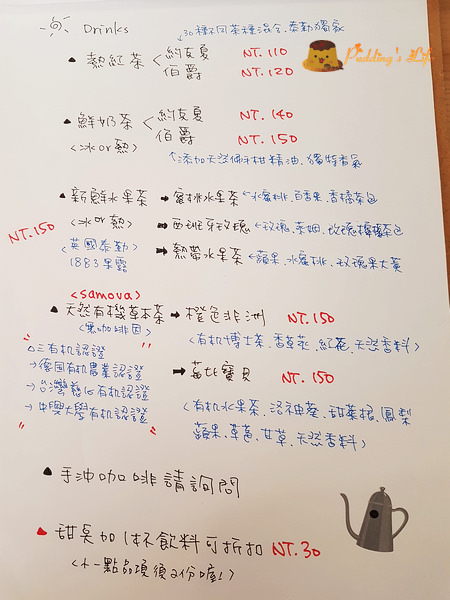 Drinks
30種不同茶種混合、泰勒獨家
Pudding's Life
熱紅茶 < 約克夏 NT.110
伯爵 NT.120
鮮奶茶 < 約克夏 NT.140
<冰or熱> 伯爵 NT.150
添加天然佛手柑精油、獨特香氣
新鮮水果茶 → 蜜桃水果茶 <水蜜桃、百香果、香橘茶包
NT.150 <冰or熱> → 西班牙玫瑰 <玫瑰、茶包
<英國泰勒 → 熱帶水果茶 <蘋果、水蜜桃、玫瑰果大黃
1883果露
<samova>
天然有機草本茶 → 橙色非洲 NT.150
<無咖啡因> <有机博士茶、香草莢、紅花、天然香料>
三有机認證
→ 德國有机農業認證 → 寶貝 NT.150
→ 台灣慈心有机認證
→ 中興大學有机認證 <有机水果茶、洛神葵、甜菜根、鳳梨
蘋果、草莓、甘草、天然香料>
手沖咖啡請詢問
甜點加1杯飲料可折扣 NT.30